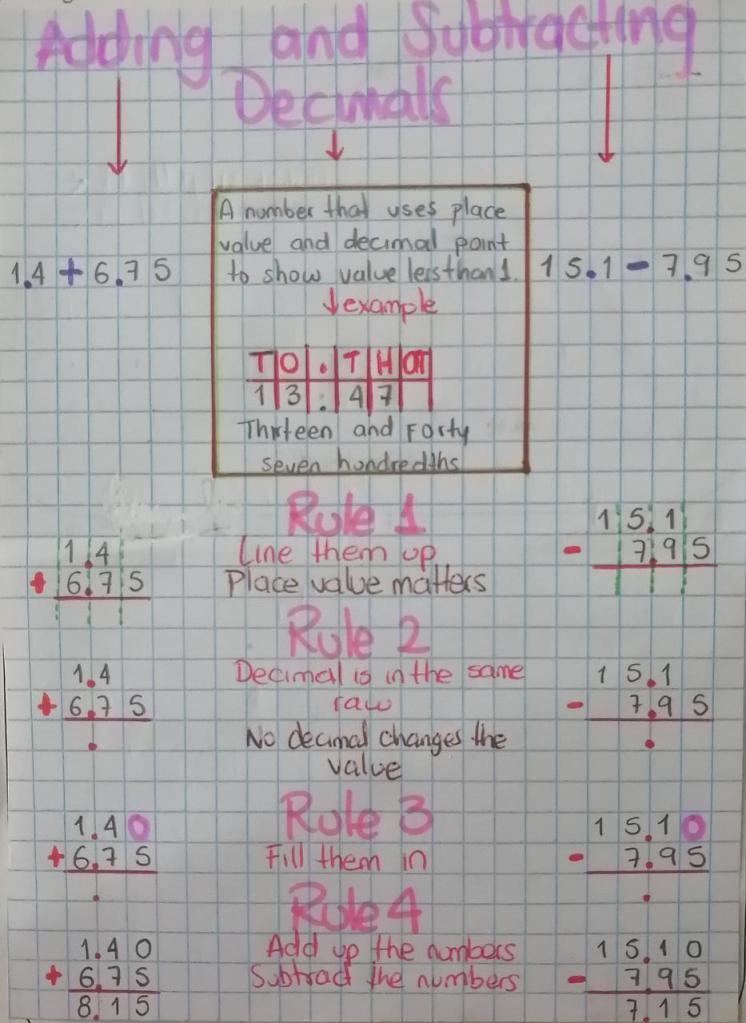 Adding and Subtracting
Decimals
1.4 + 6.75
A number that uses place
value and decimal point
to show value less than 1.
example
T O . T H
1 3 . 4 7
Thirteen and Forty
seven hundredths
15.1 - 7.95
Rule 1
Line them up
Place value matters
1.4
+ 6.75
15.1
- 7.95
Rule 2
Decimal is in the same
raw
No decimal changes the
value
1.4
+ 6.75
.
15.1
- 7.95
.
Rule 3
Fill them in
1.40
+ 6.75
.
15.10
- 7.95
.
Rule 4
Add up the numbers
Subtract the numbers
1.40
+ 6.75
8.15
15.10
- 7.95
7.15